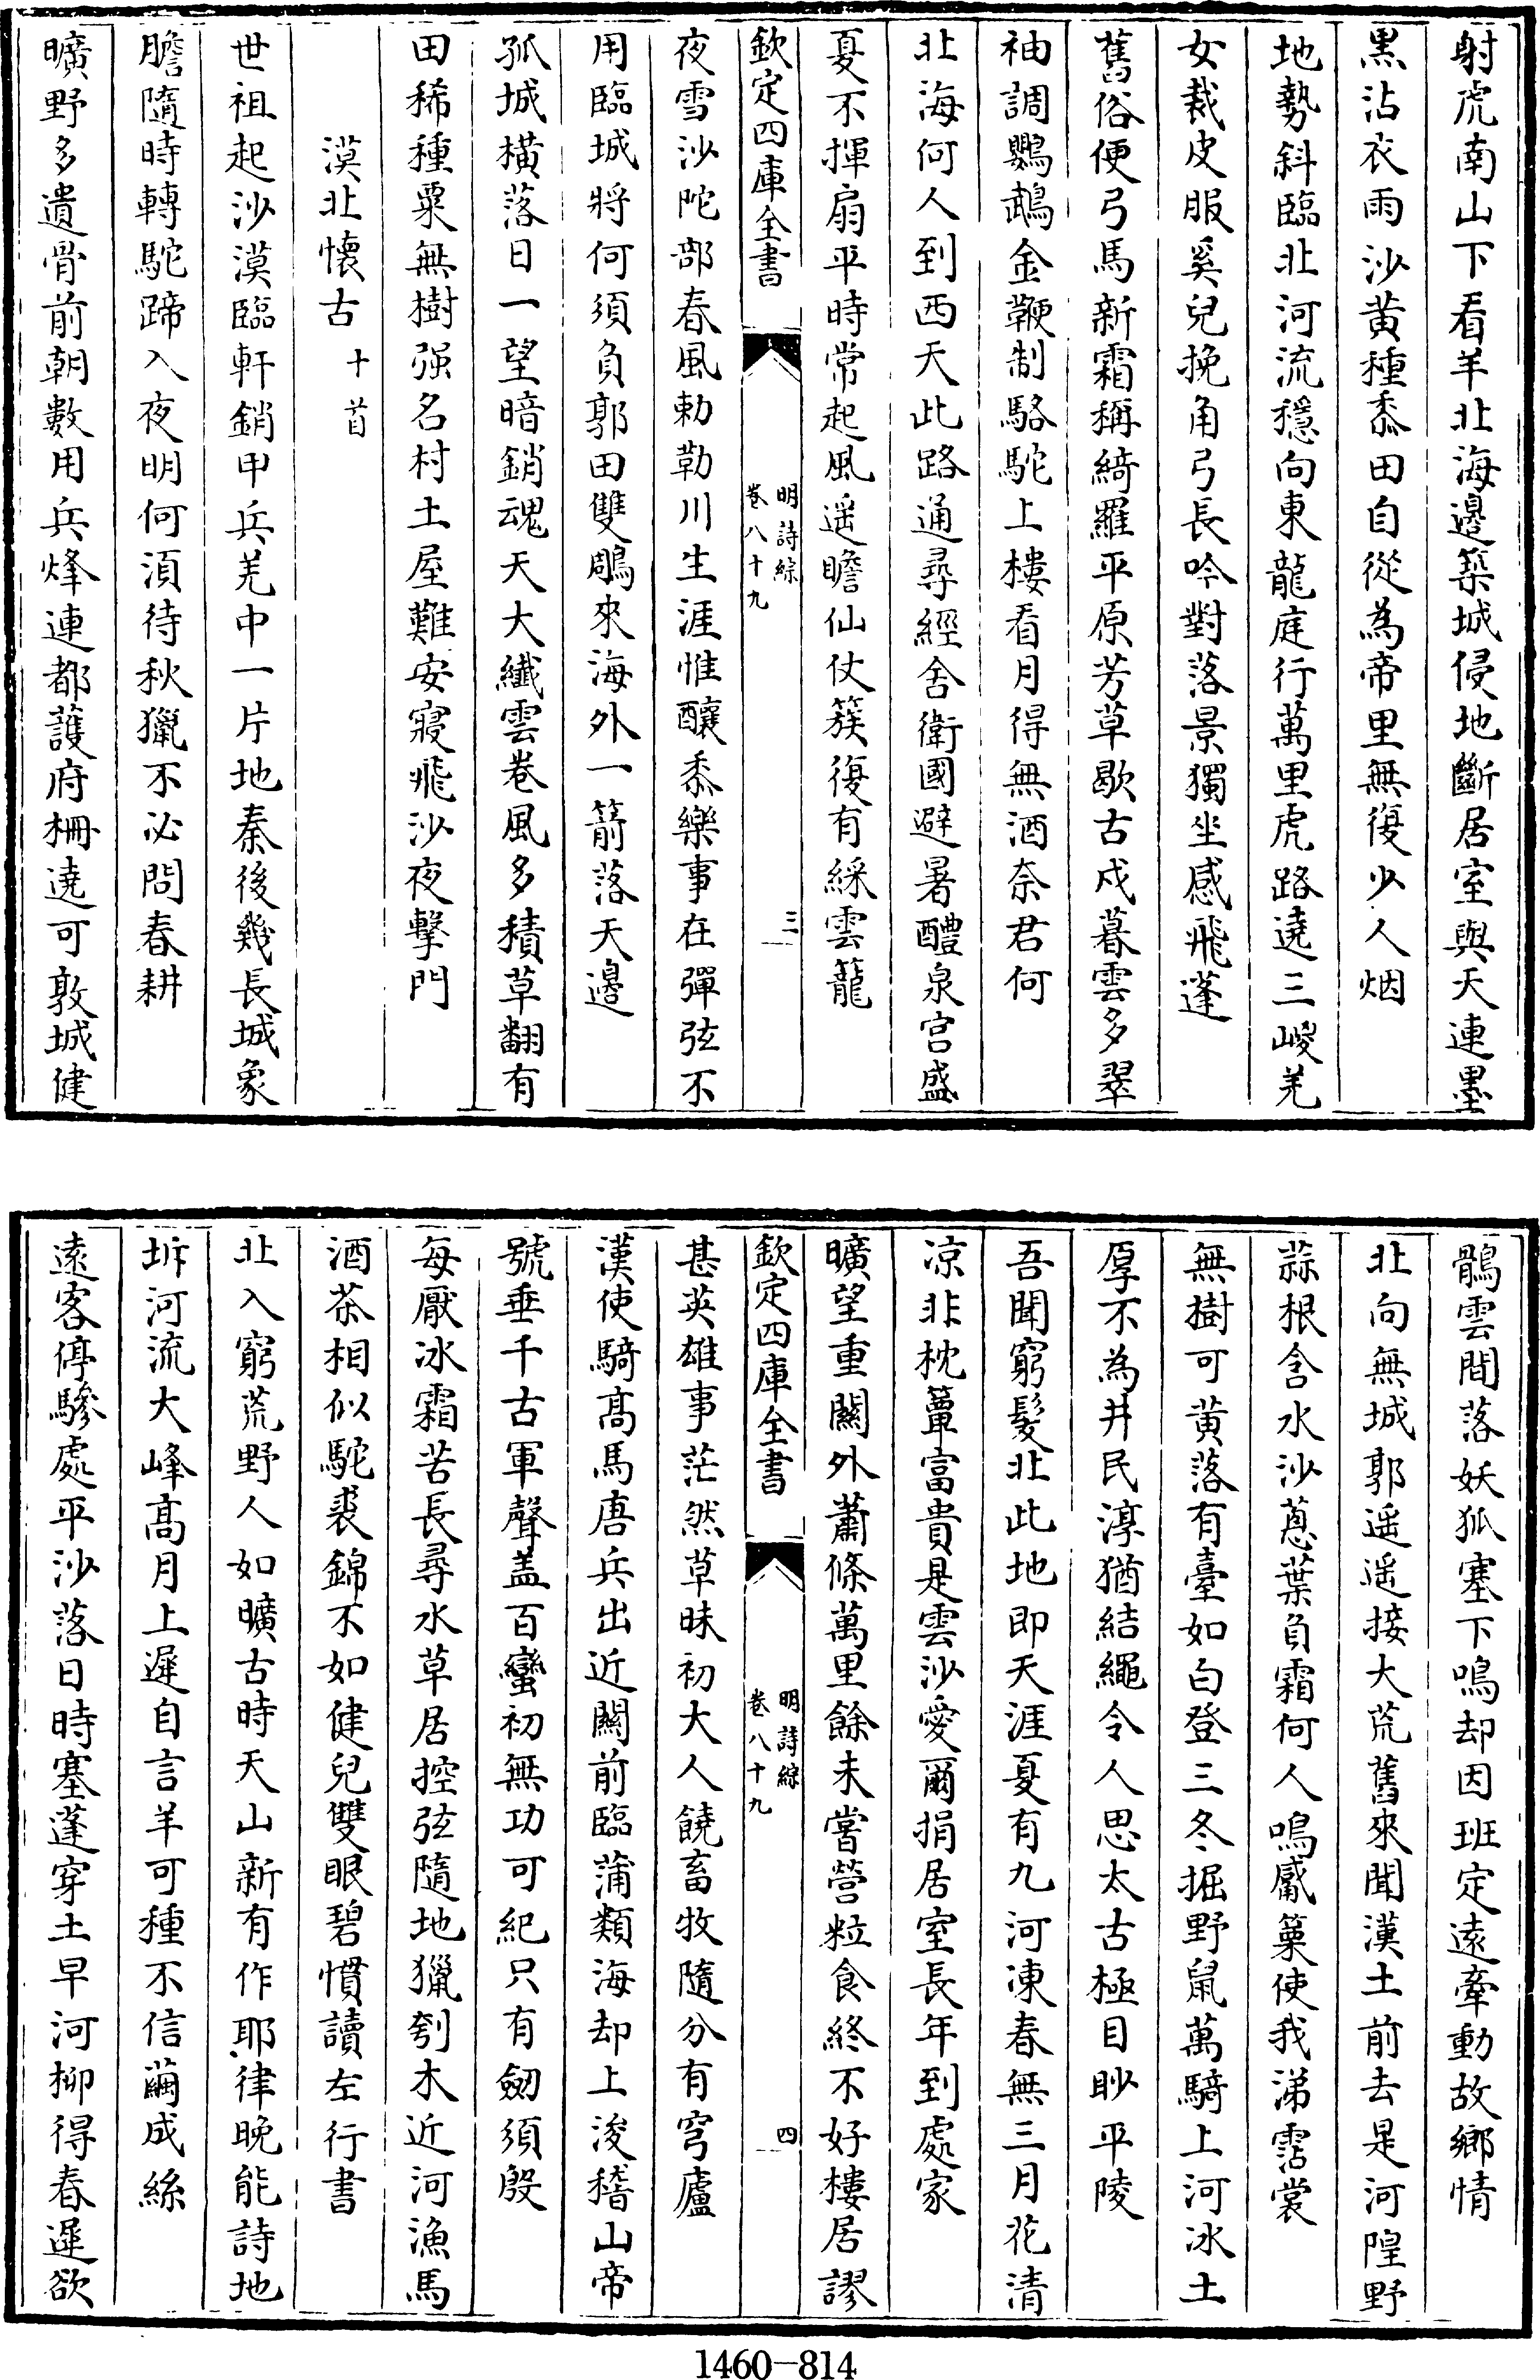 射虎南山下看羊北海邊築城侵地斷居室與天連墨
黑沾衣雨沙黄種黍田自從為帝里無復少人烟
地勢斜臨北河流穏向東龍庭行萬里虎路遶三㟎羌
女裁皮服奚兒挽角弓長吟對落景獨坐感飛蓬
舊俗便弓馬新霜稱綺羅平原芳草歇古戍暮雲多翠
袖調鸚鵡金鞭制駱駝上樓看月得無酒奈君何
北海何人到西天此路通尋經舍衛國避暑醴泉宫盛
夏不揮扇平時常起風遥瞻仙仗簇復有綵雲籠
欽定四庫全書
明詩綜
卷八十九
三
夜雪沙陀部春風勅勒川生涯惟釀黍樂事在彈弦不
用臨城將何須負郭田雙鵰來海外一箭落天邊
孤城横落日一望暗銷魂天大纖雲卷風多積草翻有
田稀種粟無樹强名村土屋難安寢飛沙夜擊門
漠北懷古十首
世祖起沙漠臨軒銷甲兵羌中一片地秦後幾長城象
膽隨時轉駝蹄入夜明何湏待秋獵不必問春耕
曠野多遺骨前朝數用兵烽連都護府栅遶可敦城健
鶻雲間落妖狐塞下鳴却因班定遠牽動故鄉情
北向無城郭遥遥接大荒舊來聞漢土前去是河隍野
蒜根含水沙葱葉負霜何人鳴觱篥使我涕霑裳
無樹可黄落有臺如白登三冬掘野鼠萬騎上河冰土
厚不為井民淳猶結繩令人思太古極目眇平陵
吾聞窮髪北此地即天涯夏有九河凍春無三月花清
凉非枕簟富貴是雲沙愛爾捐居室長年到處家
曠望重關外蕭條萬里餘未嘗營粒食終不好樓居謬
欽定四庫全書
明詩綜
卷八十九
四
甚英雄事茫然草昧初大人饒畜牧隨分有穹廬
漢使騎髙馬唐兵出近關前臨蒲類海却上浚稽山帝
號垂千古軍聲盖百蠻初無功可紀只有劒須殷
每厭冰霜苦長尋水草居控弦隨地獵刳木近河漁馬
酒茶相似駝裘錦不如健兒雙眼碧慣讀左行書
北入窮荒野人如曠古時天山新有作耶律晚能詩地
坼河流大峰髙月上遲自言羊可種不信繭成絲
遠客停驂處平沙落日時塞蓬穿土早河栁得春遲欲
1460—814